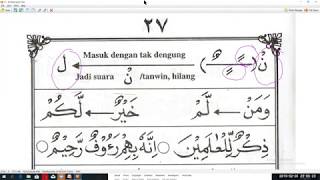 ٢٧
نْ (ـًـٍـٌ) Masuk dengan tak dengung ل
Jadi suara نْ /tanwin, hilang
وَمَنْ ← لَّمْ خَيْرٌ ← لَّكُمْ
ذِكْرٌ لِّلْعٰلَمِيْنَ ○ اِنَّهٗ بِهِمْ رَءُوْفٌ رَّحِيْمٌ ○